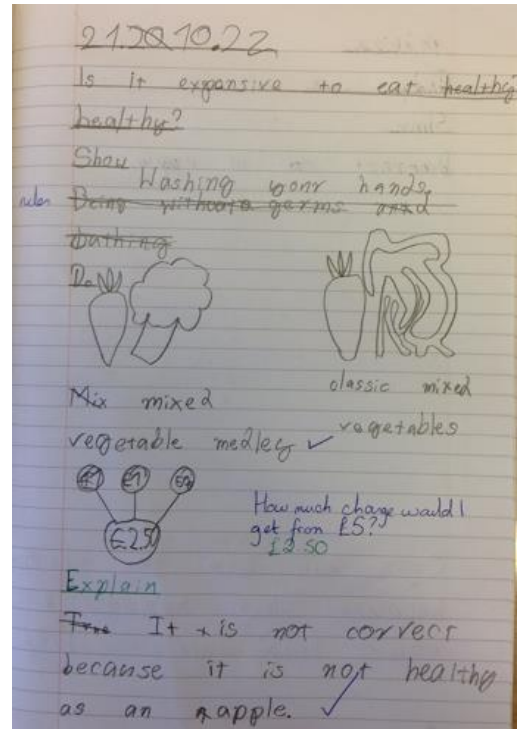 21.10.22
Is it expansive to eat healthy
healthy?
Show
Washing your hands,
ruler Being without germs and
bathing
Do
classic mixed
vegetables
Mix mixed
vegetable medley ✓
£1 £1 50
£2.50
How much change would I
get from £5?
£2.50
Explain
It is not correct
because it is not healthy
as an apple. ✓